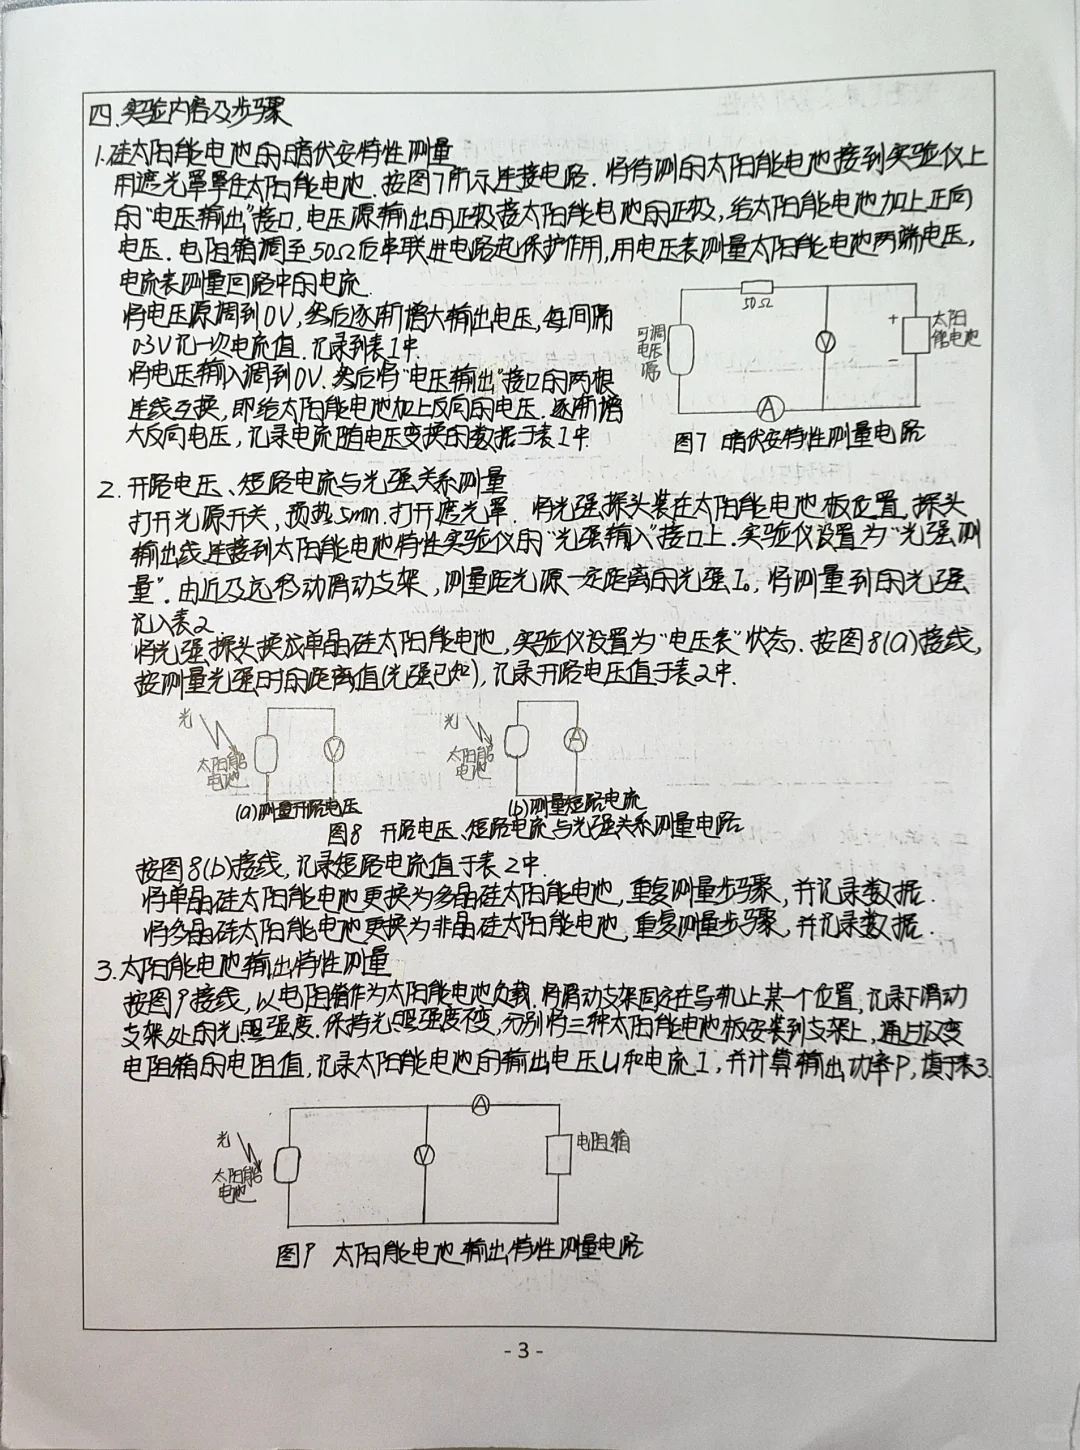 四.实验内容及步骤
1.硅太阳能电池的暗伏安特性测量
用遮光罩罩住太阳能电池.按图7所示连接电路.将待测的太阳能电池接到实验仪上
的"电压输出"接口,电压源输出的正极接太阳能电池的正极,给太阳能电池加上正向
电压.电阻箱调至50Ω后串联进电路起保护作用,用电压表测量太阳能电池两端电压,
电流表测量回路中的电流.
将电压源调到0V,然后逐渐增大输出电压,每间隔
0.3V记一次电流值.记录到表1中.
将电压输入调到0V.然后将"电压输出"接口的两根
连线互换,即给太阳能电池加上反向的电压.逐渐增
大反向电压,记录电流随电压变换的数据于表1中.
50Ω
可调
电压
源
V
+
−
太阳
能电池
A
图7 暗伏安特性测量电路
2.开路电压、短路电流与光强关系测量
打开光源开关,预热5min.打开遮光罩.将光强探头装在太阳能电池板位置,探头
输出线连接到太阳能电池特性实验仪的"光强输入"接口上.实验仪设置为"光强测
量".由近及远移动滑动支架,测量距光源一定距离的光强I₀,将测量到的光强
记入表2
将光强探头换成单晶硅太阳能电池,实验仪设置为"电压表"状态.按图8(a)接线,
按测量光强时的距离值(光强已知),记录开路电压值于表2中.
光
太阳能
电池
V
光
太阳能
电池
A
(a)测量开路电压
(b)测量短路电流
图8 开路电压、短路电流与光强关系测量电路
按图8(b)接线,记录短路电流值于表2中.
将单晶硅太阳能电池更换为多晶硅太阳能电池,重复测量步骤,并记录数据.
将多晶硅太阳能电池更换为非晶硅太阳能电池,重复测量步骤,并记录数据.
3.太阳能电池输出特性测量
按图9接线,以电阻箱作为太阳能电池负载.将滑动支架固定在导轨上某一个位置,记录下滑动
支架处的光照强度.保持光照强度不变,分别将三种太阳能电池板安装到支架上,通过改变
电阻箱的电阻值,记录太阳能电池的输出电压U和电流I,并计算输出功率P,填于表3.
A
光
太阳能
电池
V
电阻箱
图9 太阳能电池输出特性测量电路
- 3 -